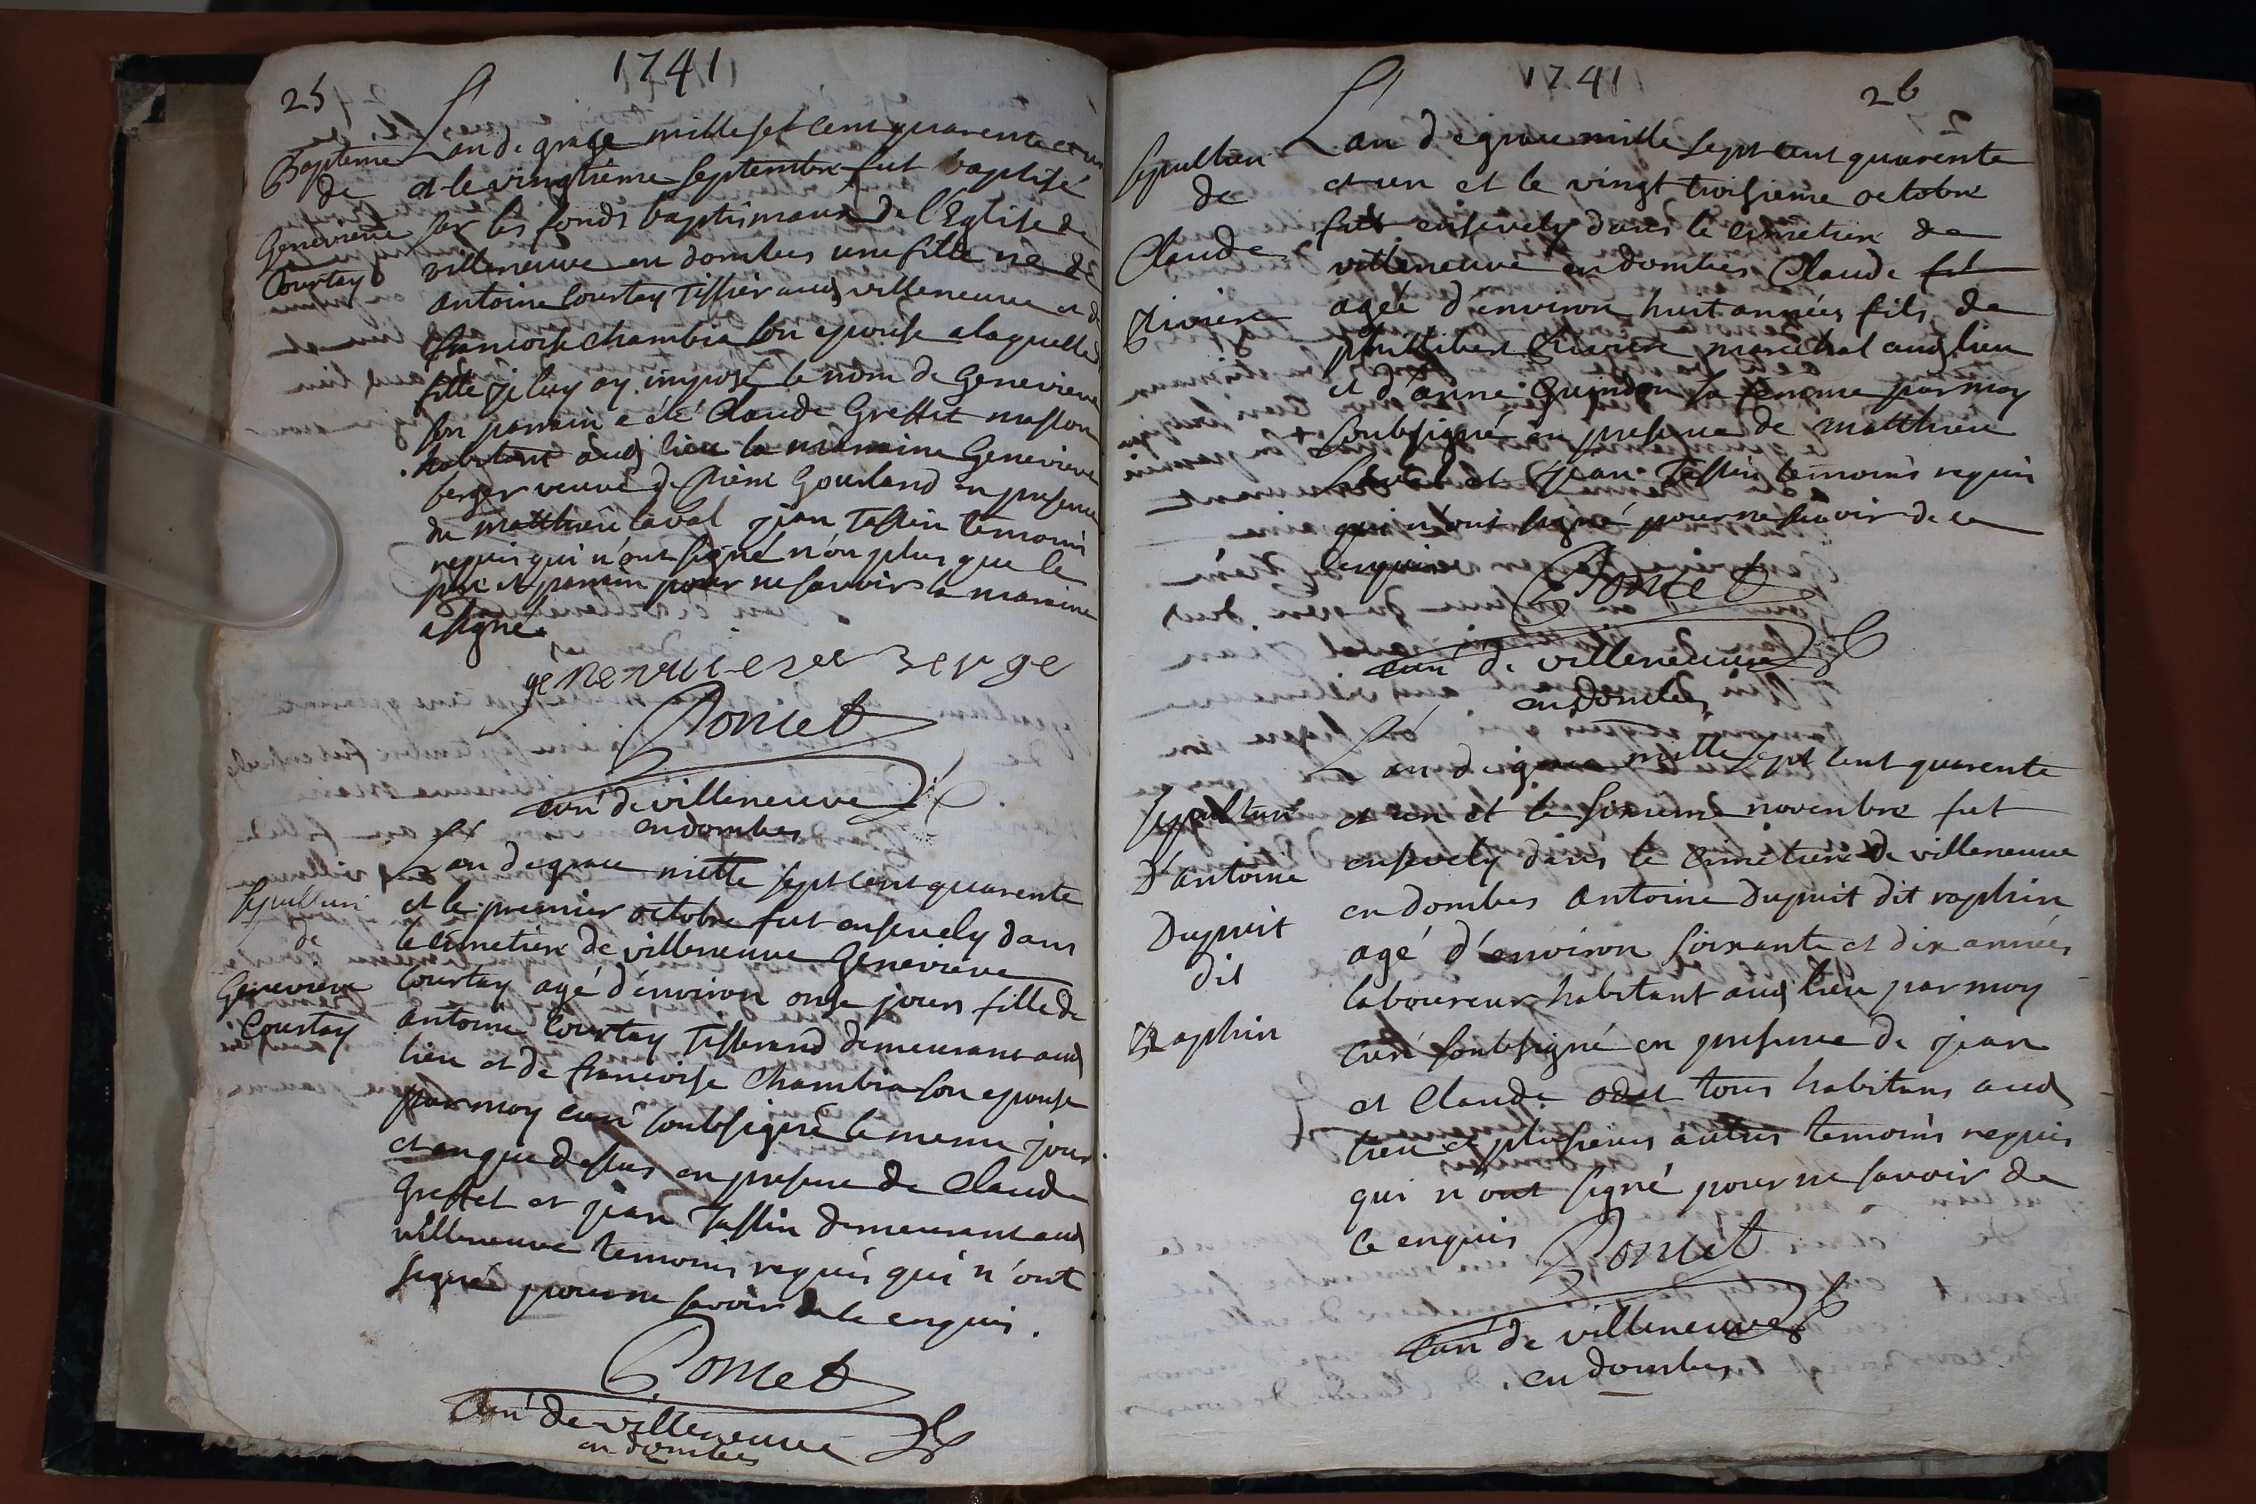 1741
25
Bapteme
de
Genevieve
Courtay
L'an de grace mille sept cent quarente et un
et le vingtième septembre fut baptisé
sur les fonds baptismaux de l'Eglise de
villeneuve en dombes une fille né de
antoine Courtay Tissier aud villeneuve et de
francoise chambia son epouse a laquelle
fille je luy ay imposé le nom de Genevieve
son parrain a été Claude Greffet masson
habitant aud lieu la marraine Genevieve
berger veuve de Pierre Gourland en presence
de matthieu laval jean Tassin temoins
requis qui n'ont signé n'on plus que le
pere et parrain pour ne savoir la maraine
a signé
Poncet
curé de villeneuve
en dombes
Sepulture
de
Genevieve
Courtay
L'an de grace mille sept cent quarente
et le premier octobre fut ensevely dans
le cimetiere de villeneuve Genevieve
Courtay agé d'environ onse jours fille de
antoine Courtay Tisserand demeurant aud
lieu et de francoise Chambia son epouse
par moy curé soubsigné le meme jour
et an que dessus en presence de Claude
Greffet et jean Tassin demeurant aud
villeneuve temoins requis qui n'ont
signé pour ne savoir de le enquis.
Poncet
Curé de villeneuve
en dombes
1741
26
Sepulture
de
Claude
Riviere
L'an de grace mille sept cent quarente
et un et le vingt troisieme octobre
fut ensevely dans le cimetiere de
villeneuve en dombes Claude
agée d'environ huit années fils de
Riviere marechal aud lieu
et d'anne Guindon sa femme par moy
soubsigné en presence de matthieu
Laval et jean Tassin temoins requis
qui n'ont signé pour ne savoir de ce
enquis
Poncet
curé de villeneuve
en dombes
Sepulture
D'antoine
Dupuit
dit
Raphin
L'an de grace mille sept cent quarente
et un et le sixieme novembre fut
ensevely dans le cimetiere de villeneuve
en dombes antoine Dupuit dit raphin
agé d'environ soixante et dix années
laboureur habitant aud lieu par moy
curé soubsigné en presence de jean
et Claude odet tous habitans aud
lieu et plusieurs autres temoins requis
qui n'ont signé pour ne savoir de
ce enquis
Poncet
curé de villeneuve
en dombes